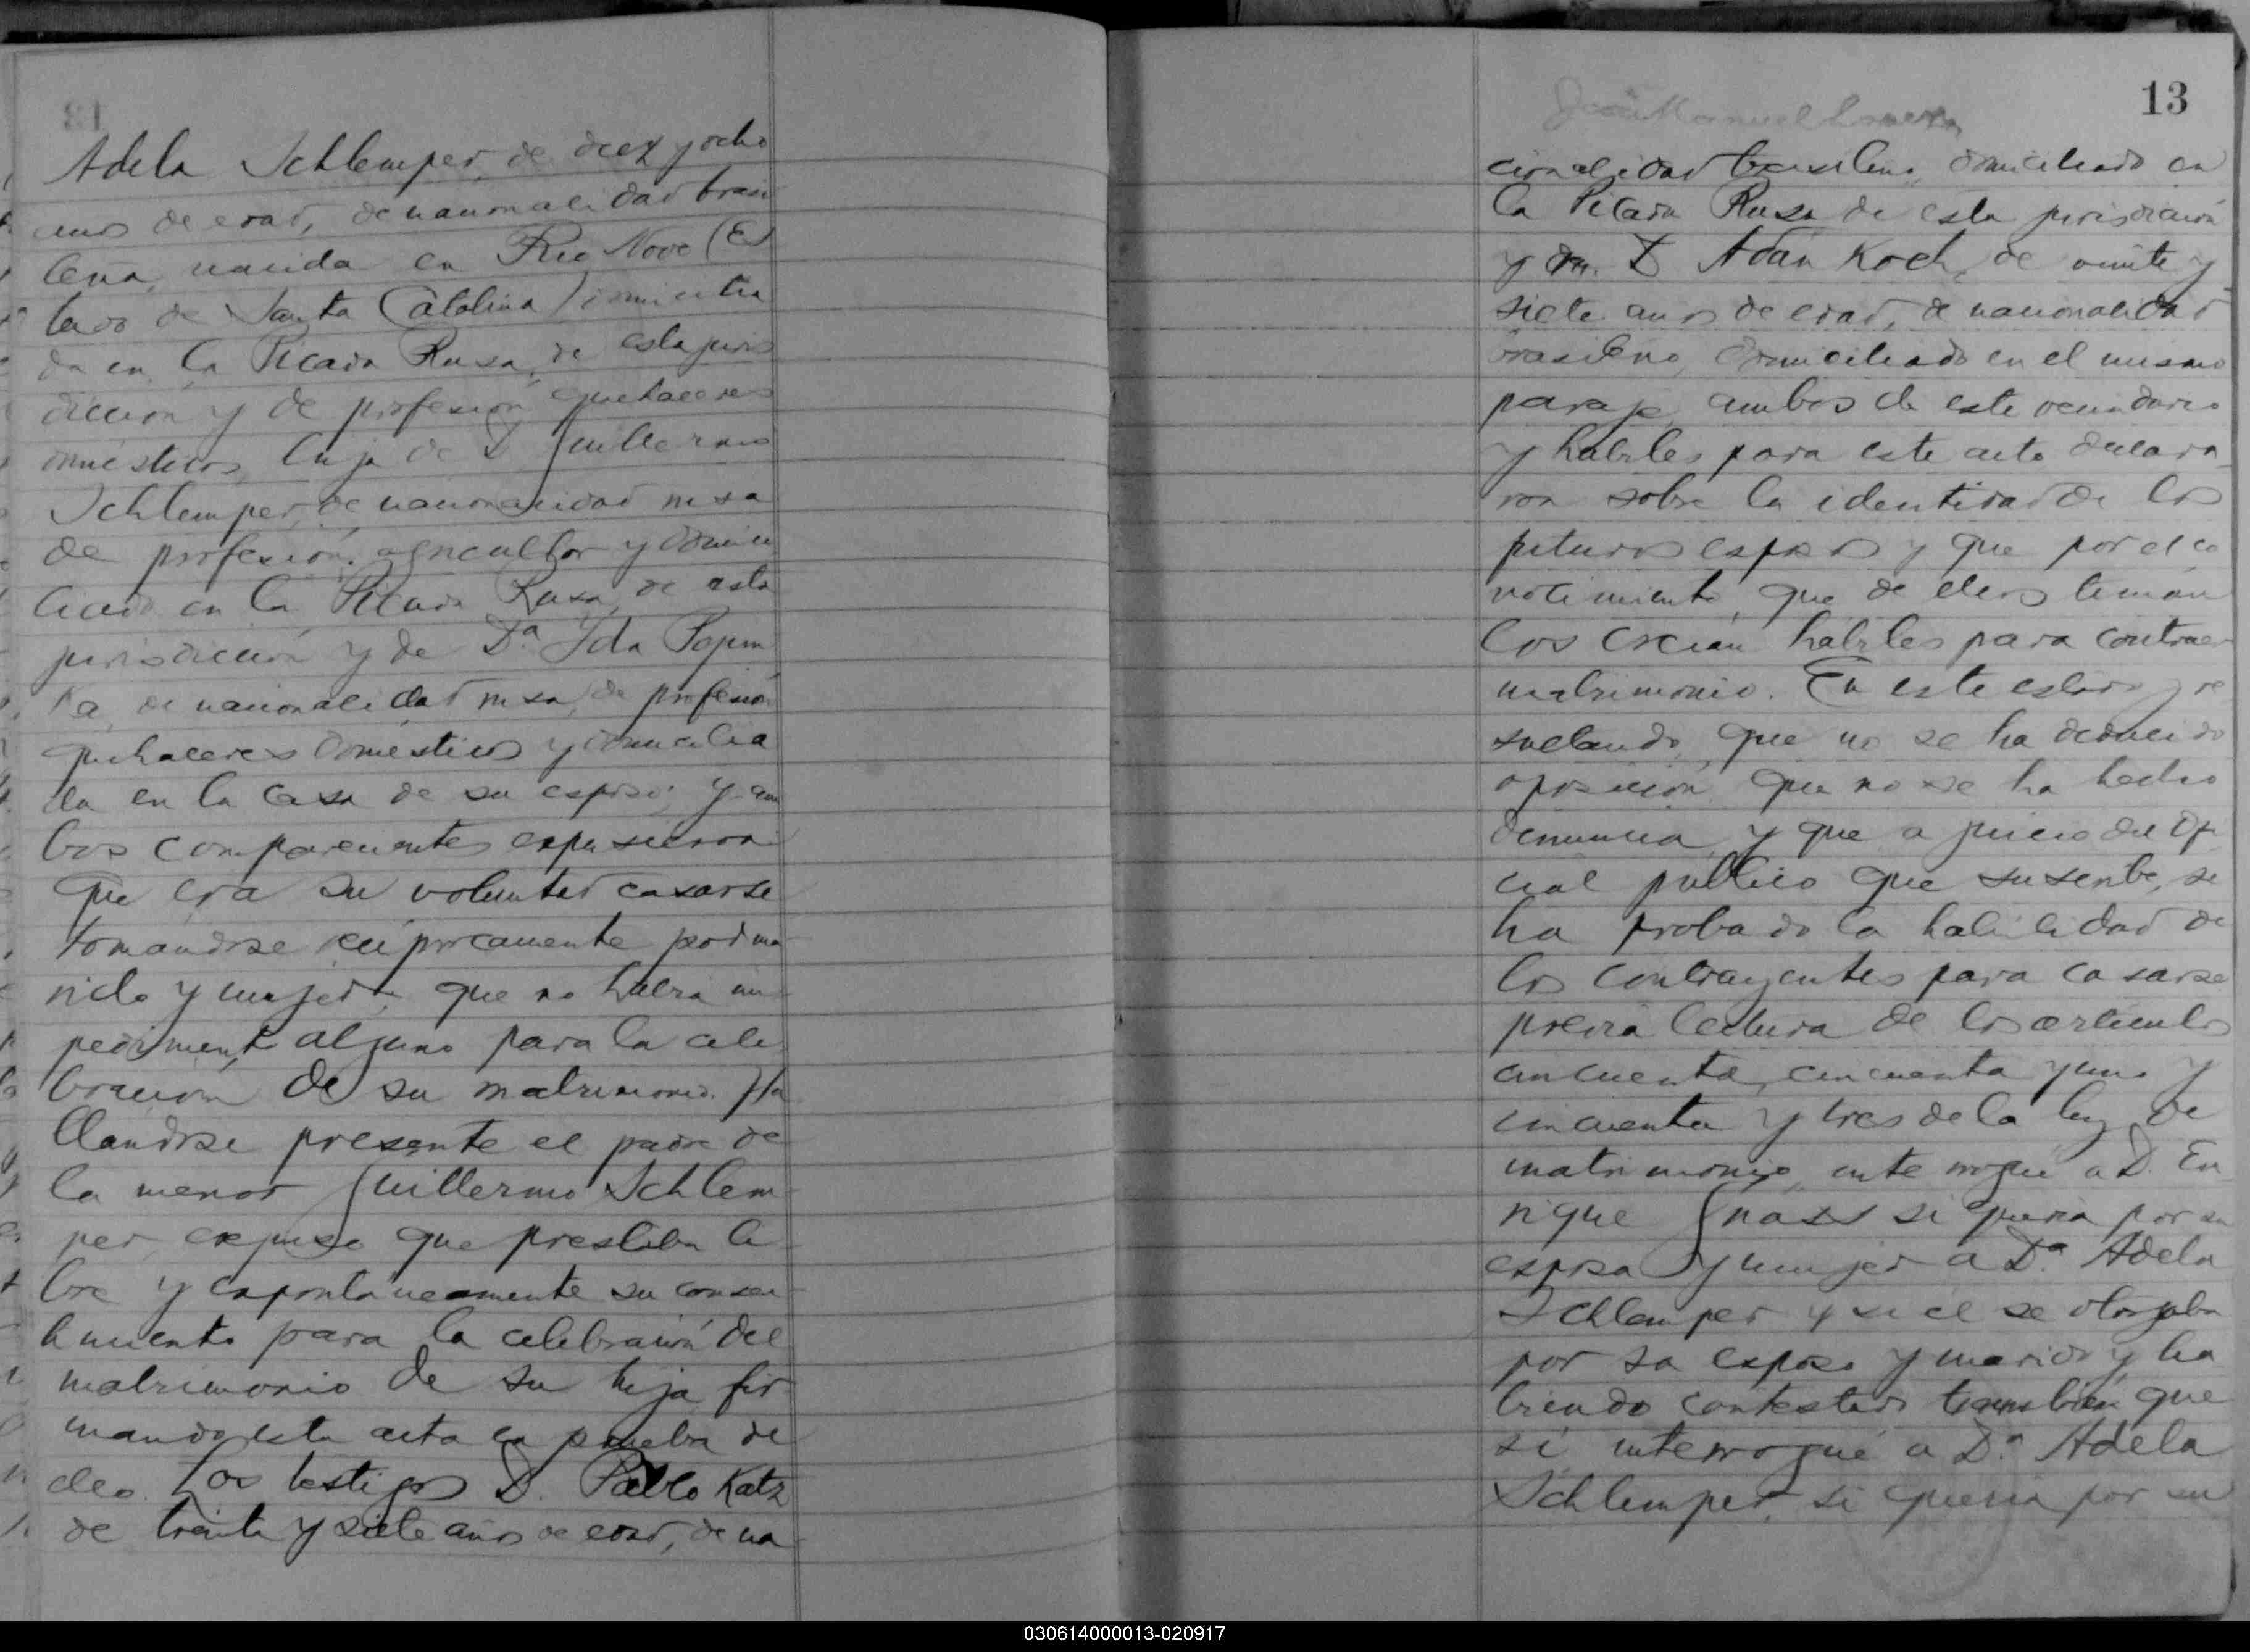 Adela Schlemper, de diez y ocho
anos de edad, de nacionalidad brasi
leña, nacida en Rio Novo (Es
tado de Santa Catalina) domicilia
da en la Picada Rusa, de esta juris
dicción y de profesión quehaceres
domésticos, hija de D Guillermo
Schlemper, de nacionalidad rusa
de profesión agricultor y domici
liado en la Picada Rusa, de esta
jurisdicción y de Da. Ida
de nacionalidad rusa, de profesión
quehaceres domésticos y domicilia
da en la casa de su esposo; y am
bos comparecientes expusieron
Que era su voluntad casarse
tomandose reciprocamente por ma
rido y mujer, que no habia im
pedimento alguno para la cele
bración de su matrimonio. Ha
llandose presente el padre de
la menor Guillermo Schlem
per, expuso que prestaba li
bre y espontaneamente su consen
timiento para la celebración del
matrimonio de su hija fir
mando esta acta en prueba de
ello. Los testigos D. Pablo Katz
de treinta y siete años de edad, de na
13
cionalidad brasileña, domiciliado en
la Picada Rusa de esta jurisdicción
y D Adán Koch, de veinte y
siete anos de edad, de nacionalidad
brasileno, domiciliado en el mismo
paraje, ambos de este vecindario
y habiles para este acto declara
ron sobre la identidad de los
futuros esposos y que por el co
nocimiento que de ellos tenian
los creian habiles para contraer
matrimonio. En este estado y re
sultando, que no se ha deducido
oposicion, que no se ha hecho
denuncia, y que a juicio del Ofi
cial publico que suscribe, se
ha probado la habilidad de
los contrayentes para casarse
previa lectura de los articulos
cincuenta, cincuenta y uno y
cincuenta y tres de la ley de
matrimonio, interrogué a D. En
rique Gnass si queria por su
esposa y mujer a Da. Adela
Schlemper y si el se otorgaba
por su esposo y marido y ha
biendo contestado tambien que
si, interrogué a Da. Adela
Schlemper, si queria por su
030614000013-020917